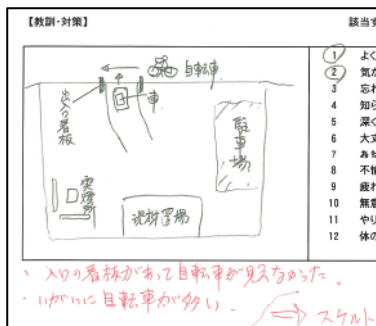 【教訓・対策】
該当す
自転車
車
出入口看板
駐車場
喫煙所
置場
1 よく
2 気が
3 忘れ
4 知ら
5 深く
6 大丈
7 あせ
8 不慣
9 疲れ
10 無意
11 やり
12 体の
・入口の看板があって自転車が見えなかった。
・いがいに自転車が多い。
スケルト